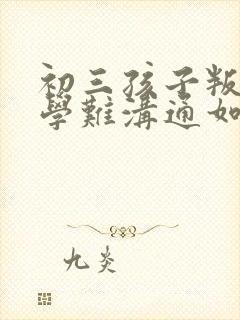 初三孩子叛
學難溝通如
九炎